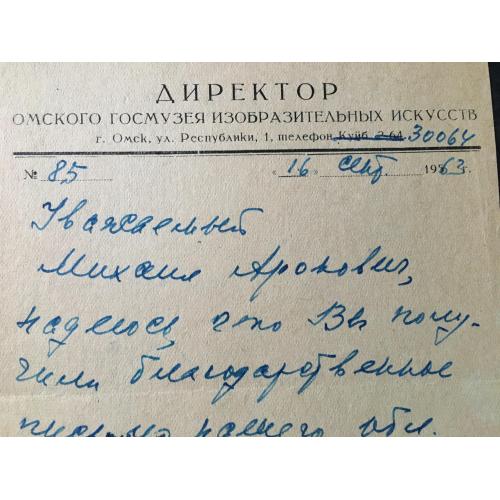 ДИРЕКТОР
ОМСКОГО ГОСМУЗЕЯ ИЗОБРАЗИТЕЛЬНЫХ ИСКУССТВ
г. Омск, ул. Республики, 1, телефон Куйб. 2-64 30064
№ 85 «16 сент. 1963 г.
Уважаемый
Михаил Аронович,
надеюсь, что Вы полу-
чили благодарственное
письмо нашего обл.